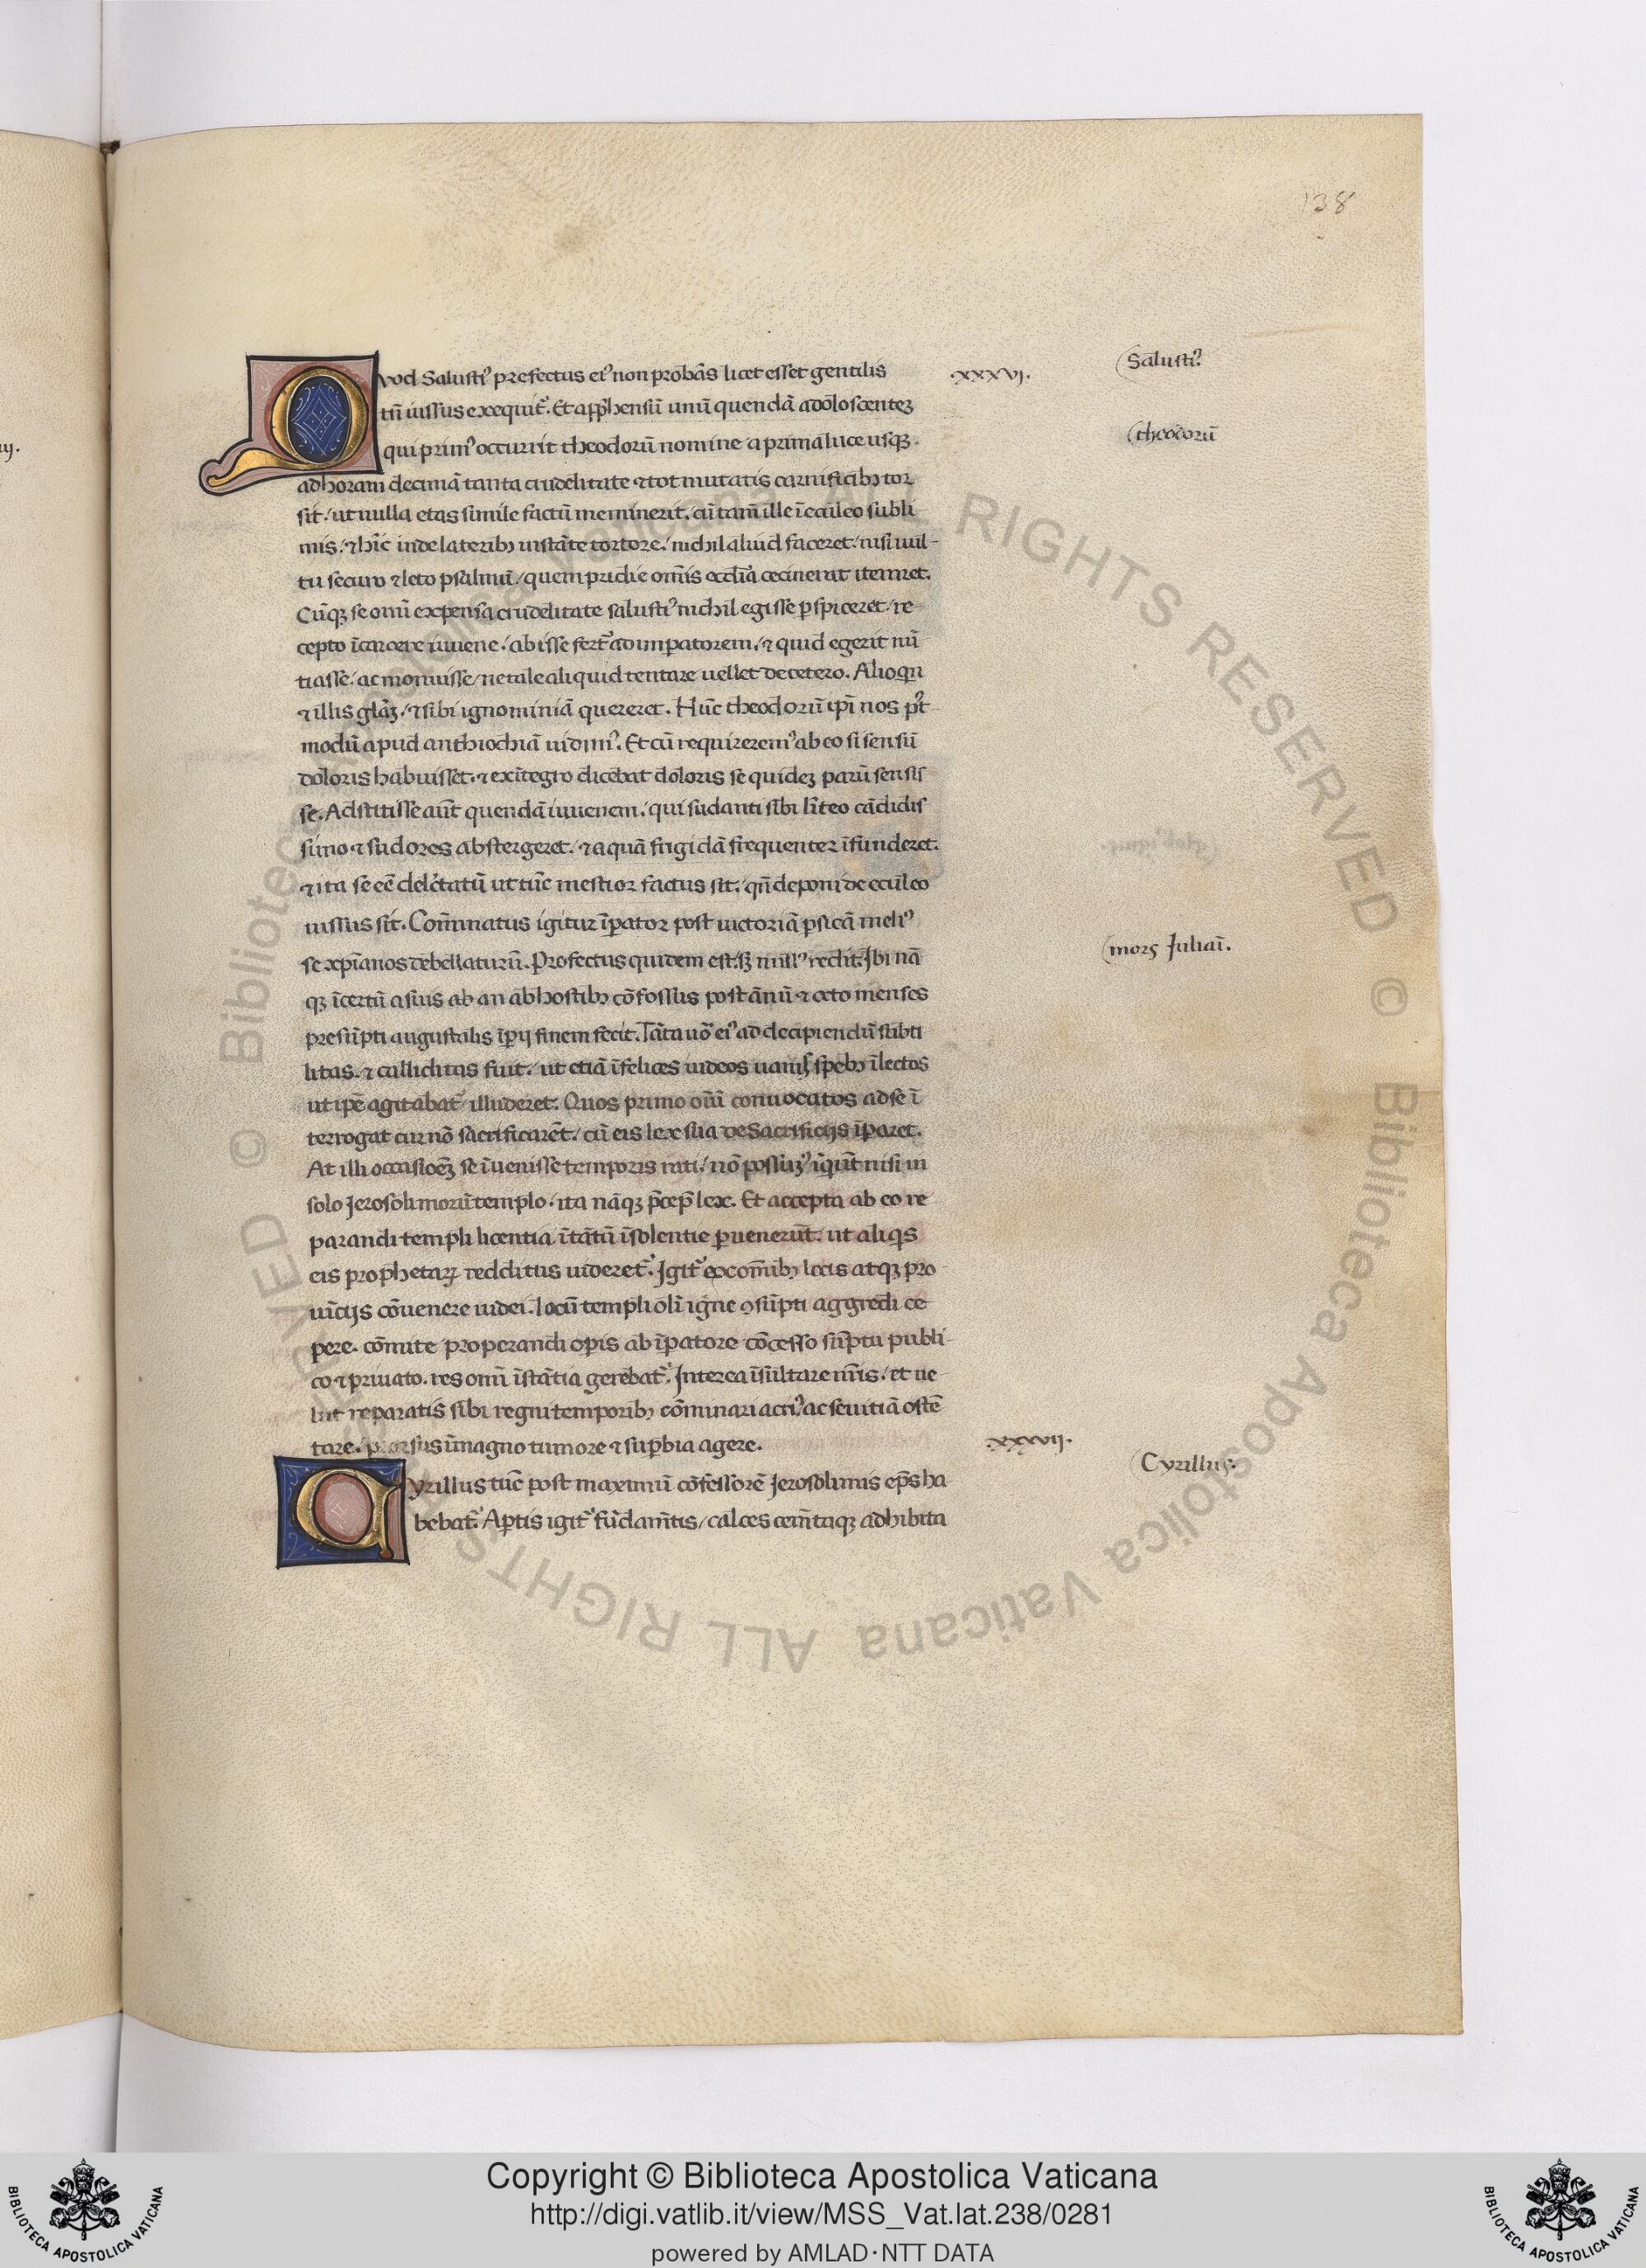 138
Quod Salustiꝰ prefectus eiꝰ non probãs licet esset gentilis
.xxxvi.
Salustiꝰ
tñ iussus exequit᷒. Et apphensũ unũ quendã adoloscenteꝫ
qui primꝰ occurrit theodorũ nomine a prima luce usqꝫ.
theodorũ
ad horam decimã tanta crudelitate ⁊ tot mutatis carnificibꝫ tor
sit / ut nulla etas simile factũ meminerit. cũ tam̃ ille ĩ eculeo subli
mis / ⁊ hĩc inde lateribꝫ instãte tortore / nichil aliud faceret / nisi uul-
tu securo ⁊ leto psalmũ / quem pridie om̃is ecclĩa cecinerat iteraret.
Cũqꝫ se omĩ expensa crudelitate salustiꝰ nichil egisse pspiceret / re
cepto ĩ carcere iuuene / abisse fert᷒ ad impatorem / ⁊ quid egerit nũ
tiasse / ac monuisse / ne tale aliquid tentare uellet de cetero. Alioqn
⁊ illis glãꝫ / ⁊ sibi ignominiã quereret. Hũc theodorũ ipĩ nos pꝰt
modũ apud anthiochiã uidimꝰ. Et cũ requireremꝰ ab eo si sensũ
doloris habuisset. ⁊ ex ĩtegro dicebat doloris se quideꝫ parũ sensis
se. Adstitisse aũt quendã iuuenem / qui sudanti sibi lĩteo cãdidis
simo ⁊ sudores abstergeret / ⁊ aquã frigidã frequenter ĩfunderet.
⁊ ita se eẽ delectatũ ut tũc mestior factus sit / qñ deponi de eculeo
iussus sit. Com̃inatus igitur ĩpator post uictoriã psicã meliꝰ
se xpĩanos debellaturũ. Profectus quidem est. sꝫ nullꝰ redit. Ibi nã
mors Iuliaĩ.
qꝫ ĩcertũ a suis ab an ab hostibꝫ cõfossus post ãnũ ⁊ octo menses
presũpti augustalis ĩpij finem fecit. Tãta uõ eiꝰ ad decipiendũ subti
litas. ⁊ calliditas fuit / ut etiã ĩfelices iudeos uanis spebꝫ ĩlectos
ut ipẽ agitabat᷒ illuderet. Quos primo oĩũ conuocatos ad se ĩ
terrogat cur nõ sacrificarẽt / cũ eis lex sua de Sacrificijs ĩparet.
At illi occasiõeꝫ se ĩuenisse temporis rati / nõ possuꝫꝰ ĩquĩt nisi in
solo Jerosolimorũ templo. ita nãqꝫ p̃cep̃ lex. Et accepta ab eo re
parandi templi licentia ĩtãtũ ĩsolentie puenerũt. ut aliqs
eis prophetaꝝ redditus uideret᷒. Igit᷒ ex com̃ibꝫ locis atqꝫ pro
uĩcijs cõuenere iudei. locũ templi olĩ igne ↄsũpti aggredi ce
pere. cõmite properandi opis ab ĩpatore cõcesso sũptu publi-
co ⁊ priuato. res omĩ ĩstãtia gerebat᷒. Interea ĩsultare nr̃is / et ue-
lut reparatis sibi regni temporibꝫ cõminari acriꝰ ac seuitiã ostẽ
tare / prorsus ĩ magno tumore ⁊ supbia agere.
.xxxvij.
Cyrillus tũc post maximũ cõfessorẽ Jerosolimis ep̃s ha
Cyrillus.
bebat᷒. Aptis igit᷒ fũdam̃tis / calces cem̃taqꝫ adhibita
Copyright © Biblioteca Apostolica Vaticana
http://digi.vatlib.it/view/MSS_Vat.lat.238/0281
powered by AMLAD·NTT DATA
BIBLIOTECA APOSTOLICA VATICANA
BIBLIOTECA APOSTOLICA VATICANA
© Biblioteca Apostolica Vaticana ALL RIGHTS RESERVED © Biblioteca Apostolica Vaticana ALL RIGHTS RESERVED